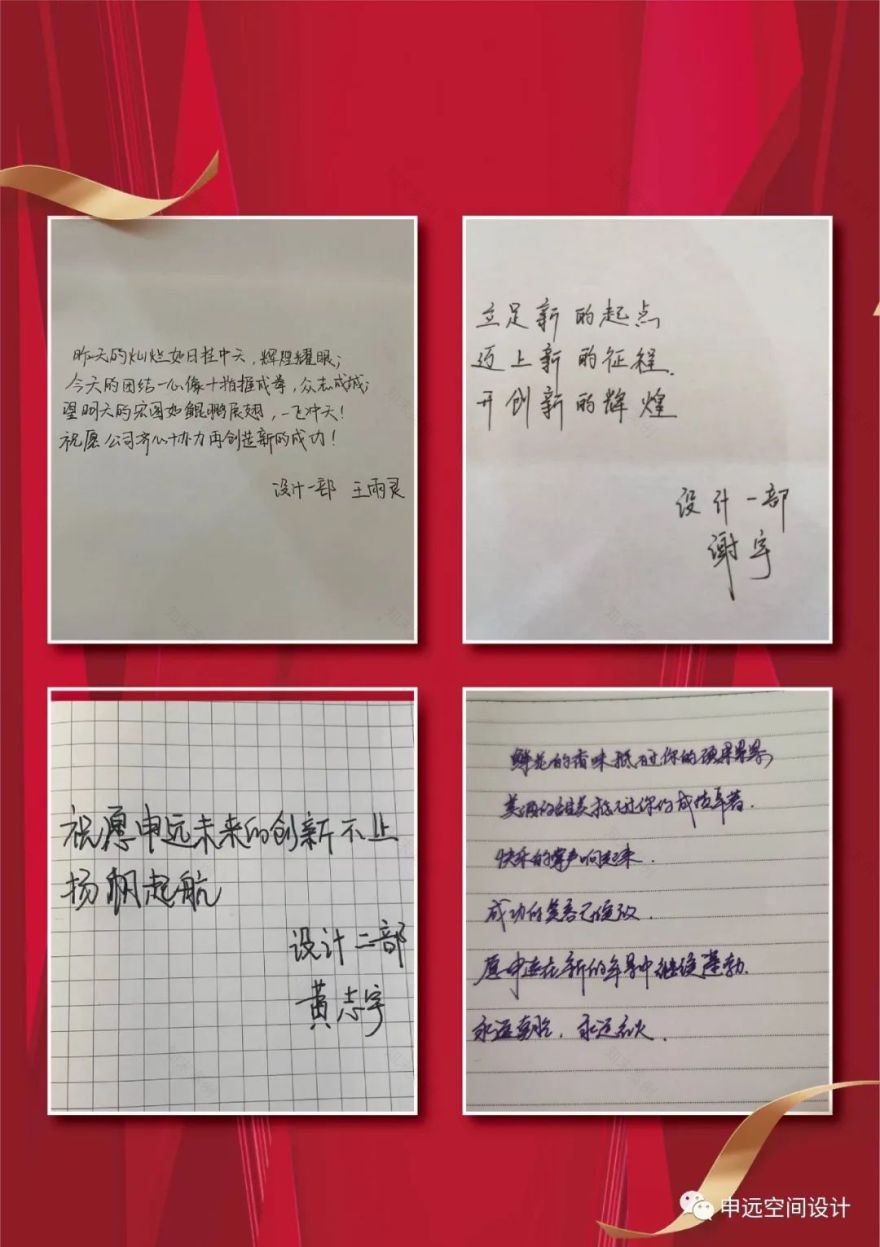 昨天的灿烂如日挂中天，辉煌耀眼；
今天的团结一心像十指握成拳，众志成城；
望明天的宏图如鲲鹏展翅，一飞冲天！
祝愿公司齐心协力再创造新的成功！
设计一部 王雨灵
立足新的起点
迈上新的征程
开创新的辉煌
设计一部
谢宇
祝愿申远未来的创新不止
扬帆起航
设计二部
黄志宇
鲜花的香味抵不过你的硕果累累，
美酒的甜美抵不过你的成绩卓著.
快乐的掌声响起来.
成功的美喜已绽放.
愿申远在新的年景中继续蓬勃.
永远，永远红火.
申远空间设计